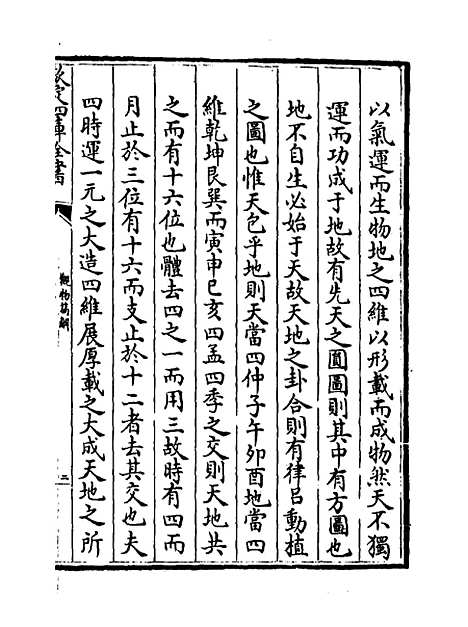 以氣運而生物地之四維以形載而成物然天不獨
運而功成于地故有先天之圓圖則其中有方圖也
地不自生必始于天故天地之卦合則有律呂動植
之圖也惟天包乎地則天當四仲子午夘酉地當四
維乾坤艮巽而寅申巳亥四孟四季之交則天地共
之而有十六位也體去四之一而用三故時有四而
月止於三位有十六而支止於十二者去其交也夫
四時運一元之大造四維展厚載之大成天地之所
欽定四庫全書
觀物篇解
二